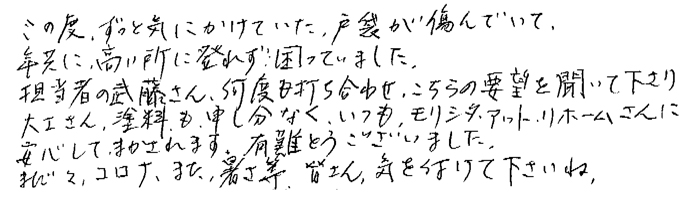 この度、ずっと気にかけていた、戸袋が傷んでいて、
年共に、高い所に登れず困っていました。
担当者の武藤さん、何度も打ち合わせ、こちらの要望を聞いて下さり
大工さん、塗料も、申し分なく、いつも、モリシタ・アット・リホームさんに
安心して、まかされます。有難とうございました。
まだ々、コロナ、また、暑さ等、皆さん、気を付けて下さいね。